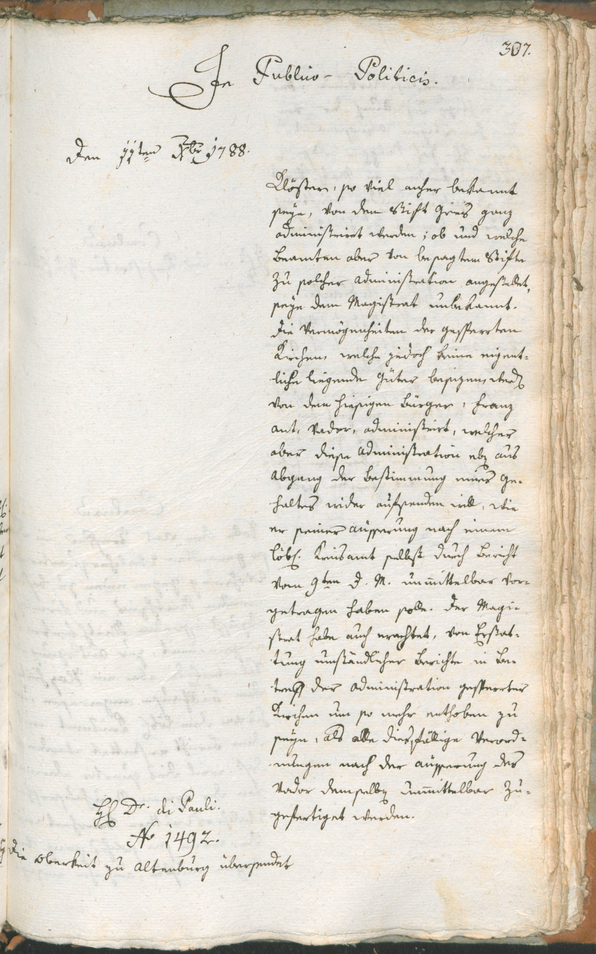 307.
In Publico-Politicis.
Den 11ten Xbr 1788.
Klöster, so viel anher bekannt
seye, von dem Stift Gries ganz
administrirt werden; ob und welche
Beamten aber von besagtem Stifte
zu solcher Administration angestellet,
seye dem Magistrat unbekannt.
Die Vermögenheiten der gesperrten
Kirchen, welche jedoch keine eigent-
liche liegende Güter besizen, werden
von dem hiesigen Burger, Franz
Ant. Vador, administrirt, welcher
aber diese Administration aus
Abgang der Bestimmung eines Ge-
haltes wider aufkünden will, wie
er seiner äusserung nach einem
löbl. Kreisamt selbst durch Bericht
vom 9ten d. M. unmittelbar vor-
getragen haben solle. Der Magi-
strat habe auch erachtet, von Erstat-
tung umständlicher Berichte in Be-
treff der Administration gesperrter
Kirchen um so mehr enthoben zu
seyn, als alle diesfällige Verord-
nungen nach der äusserung des
Vador demselben unmittelbar zu-
gefertiget werden.
H Dr. di Pauli.
No 1492.
Die Obrigkeit zu Altenburg übersendet